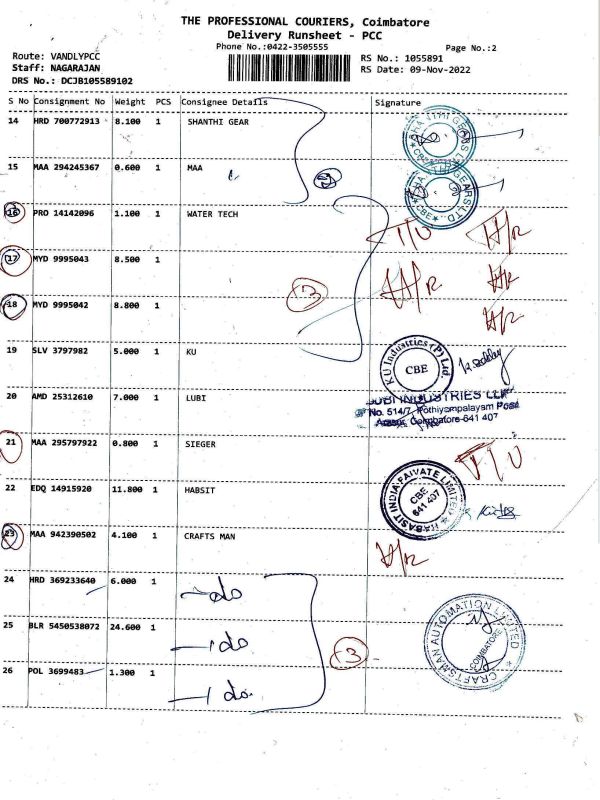 THE PROFESSIONAL COURIERS, Coimbatore
Delivery Runsheet - PCC
Phone No.:0422-3505555
Page No.:2
Route: VANDLYPCC
RS No.: 1055891
Staff: NAGARAJAN
RS Date: 09-Nov-2022
DRS No.: DCJB105589102
S No Consignment No Weight PCS Consignee Details Signature
14 HRD 700772913 8.100 1 SHANTHI GEAR
15 MAA 294245367 0.600 1 MAA
16 PRO 14142096 1.100 1 WATER TECH
17 MYD 9995043 8.500 1
18 MYD 9995042 8.800 1
19 SLV 3797982 5.000 1 KU
KU Industries (P) Ltd.
CBE
20 AMD 25312610 7.000 1 LUBI
LUBI INDUSTRIES LLP
No. 514/7, Pothiyampalayam Post
Coimbatore-641 407
21 MAA 295797922 0.800 1 SIEGER
22 EDQ 14915920 11.800 1 HABSIT
HABASIT INDIA PRIVATE LIMITED
CBE
641 407
23 MAA 942390502 4.100 1 CRAFTS MAN
24 HRD 369233640 6.000 1 do
25 BLR 5450538072 24.600 1 do
26 POL 3699483 1.300 1 do
CRAFTSMAN AUTOMATION LIMITED
COIMBATORE